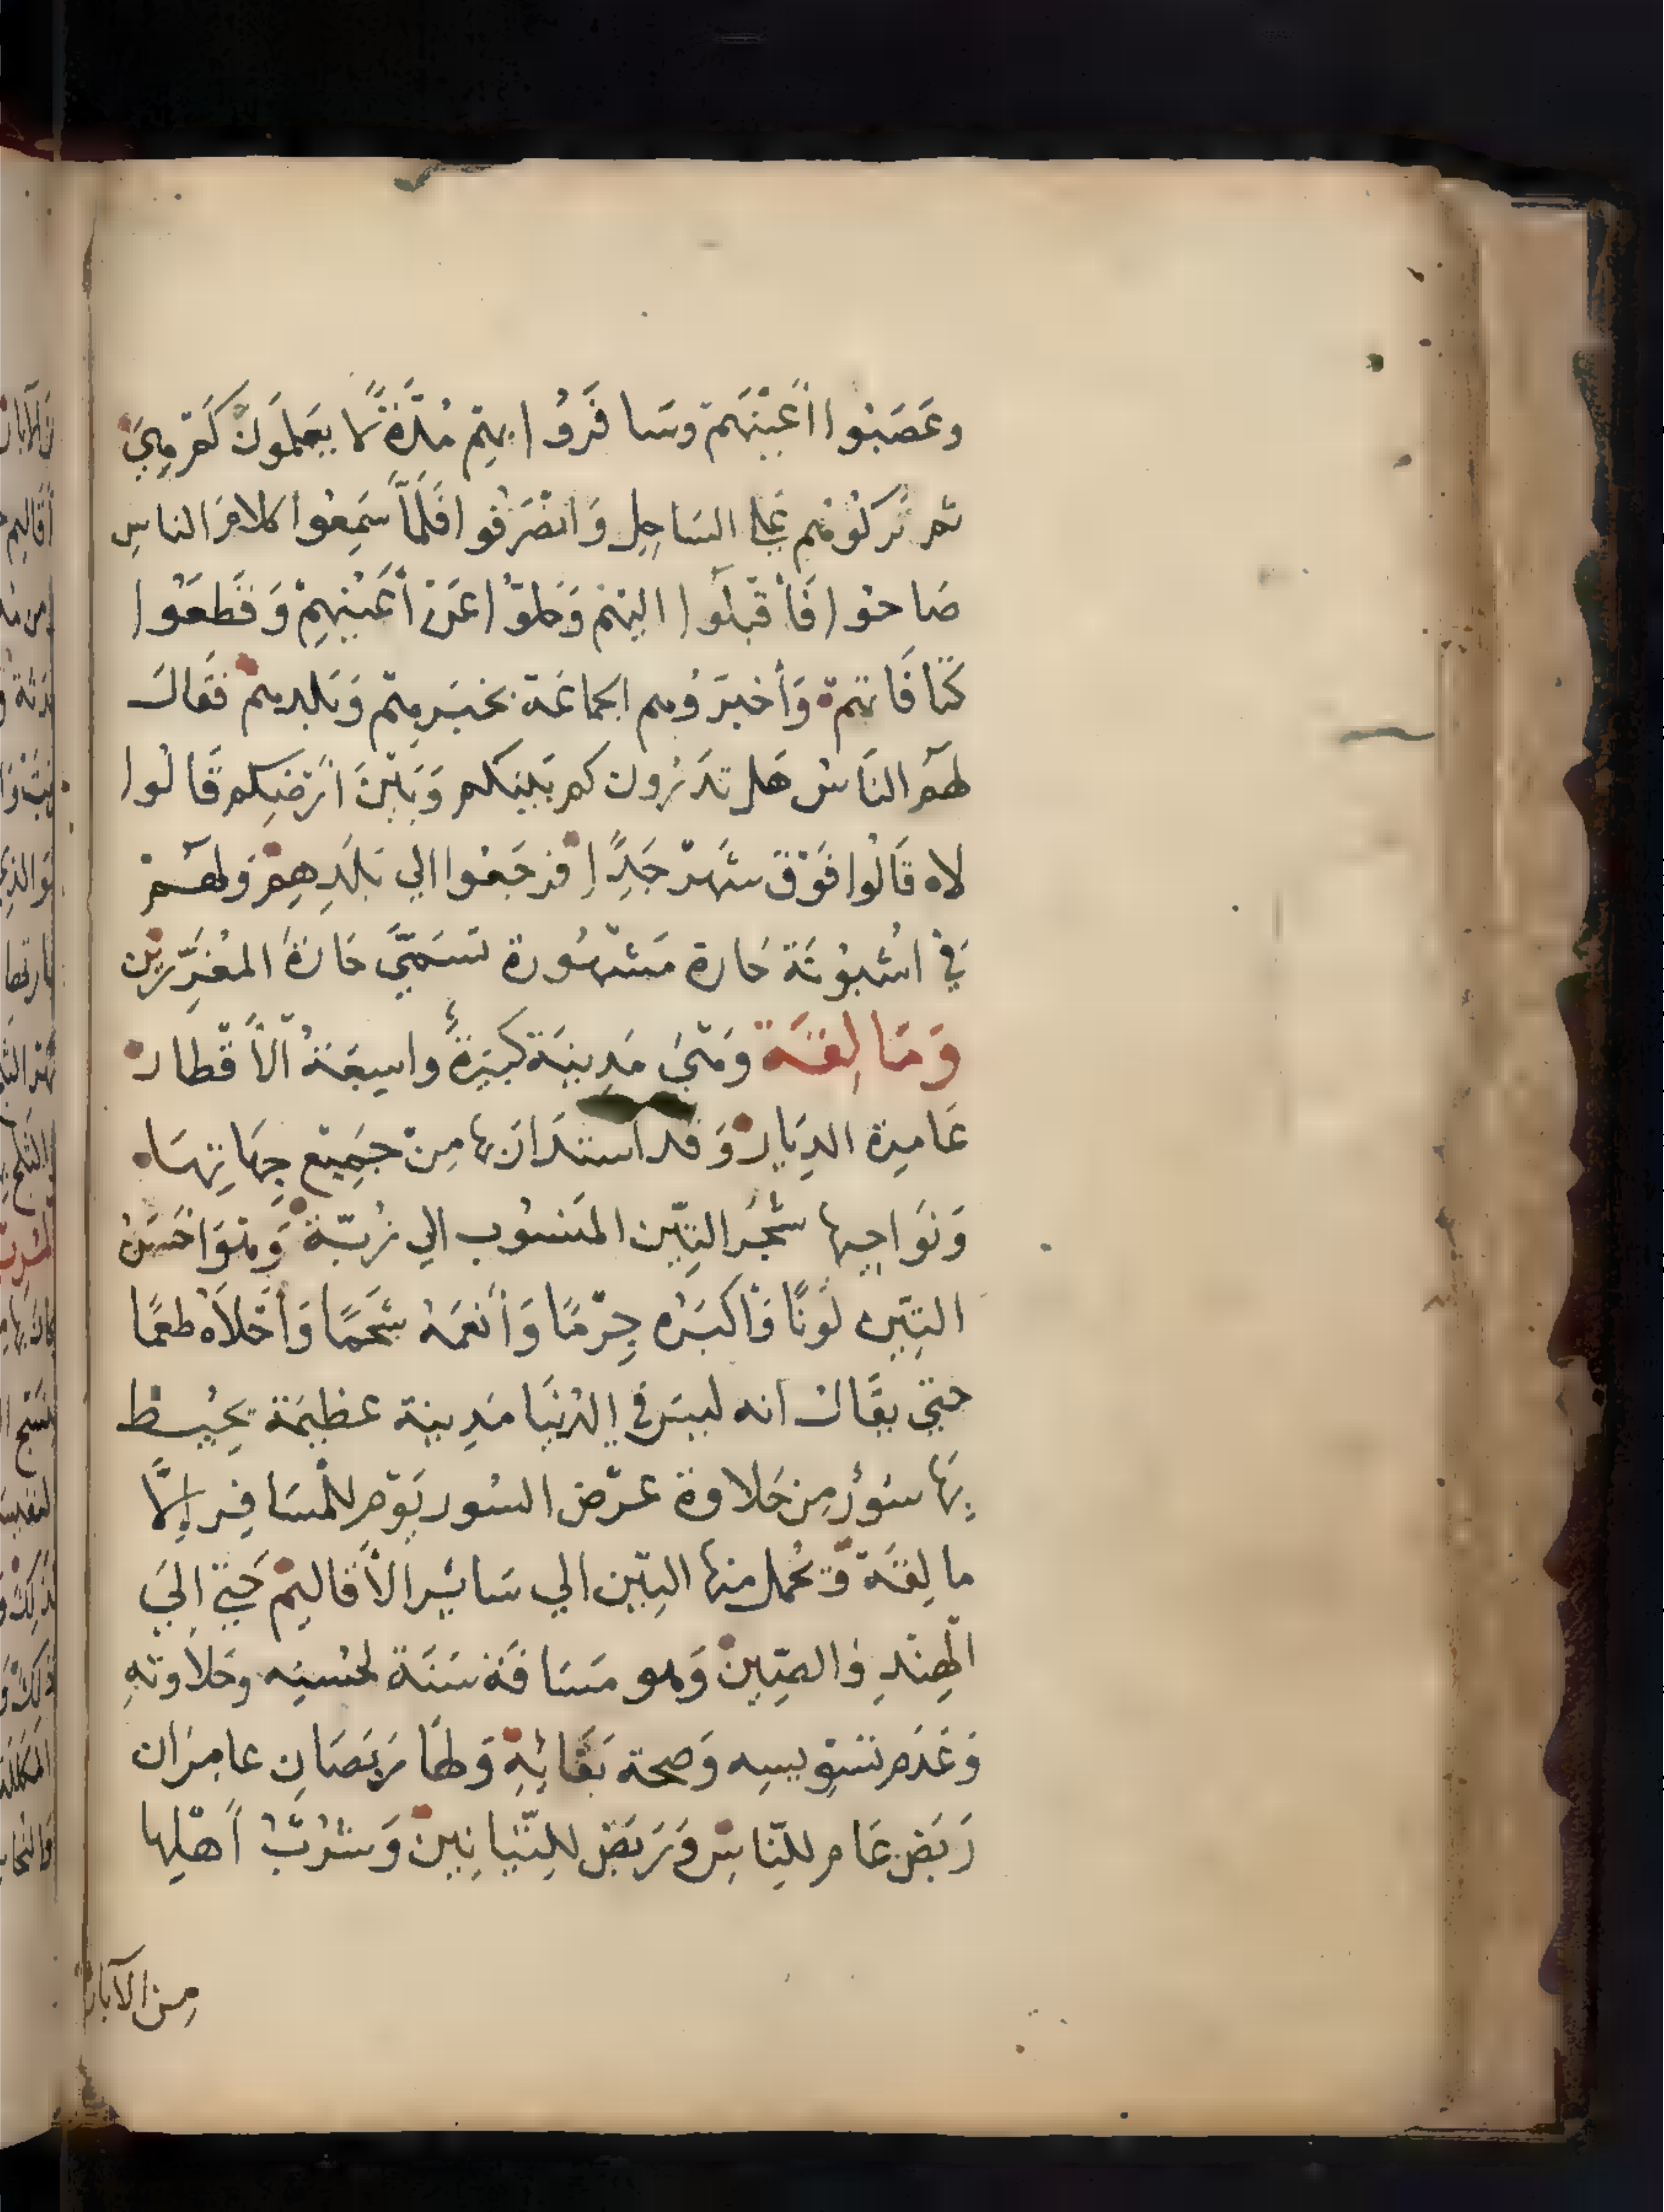 وعَصَبُوا أَعْيُنَهُمْ وسَافَرُوا بِهِمْ مُدَّةً لَا يَعلَمُونَ كَم هِيَ
ثم تَرَكُوهُم عَلَى السَاحِلِ وَانْصَرَفُوا فَلَمَّا سَمِعُوا كلامَ الناسِ
صَاحوا فَأَقْبَلُوا اليْهم وَحَلوّا عَنْ أَعْيُنِهِمْ وَقَطَعُوا
كتافَاتهمْ وَأخبَرَوهم الجماعَة بخَبَرِهمْ وَبَلدهِم فقَالَ
لهمُ النَاسُ هَل تَدْرُون كم بَينكم وَبَيْنَ أَرْضِكم قَالُوا
لاه قَالُوا فَوْقَ شَهْرٍ جَدًّا فرَجَعُوا الي بَلَدِهِمْ وَلهم
في اشْبُونَة حَارة مَشْهُورة تسَمَّى حَارَة المغَرّرين
وَمَالِقَة وَهْيَ مَدِينَة كبيرَةٌ واسِعَةُ الأَقْطار
عَامِرَة الدِيَار وَقد استدَارَ بها مِنْ جَمِيْعِ جِهَاتِهَاه
وَنَوَاحِيها شَجَر التِيّن المَنسُوب الي رُيّة وَهوَ احْسَنُ
التِيّن لَوْنًا وَأكبَرُه جِرْمًا وَأنعَمُه شَحمًا وَأحْلاهُ طعْمًا
حتي يقَالُ انه ليسَ في الدُنيَا مَدِينة عظيمَة يحِيْط
بهَا سُوْر مِن حَلاوة عَرْض السُور يَوْم للمسَافِر إلَّا
مالِقَة وَتحُمل منها التِيّن الي سَائِر الأَقاليمْ حَتي اليَ
الْهِنْدِ وَالصِّيْن وَهو مَسَافَة سَنَة لحُسْنِه وحَلاوتهِ
وَعَدَمِ تسَوِيسِه وَصحة بَقَائِهِ وَلهَا رَبَضَانِ عامِرَان
رَبَض عَام للنَّاسِ وَرَبَض للتيَّانِينْ وَشرُبْ أَهْلِها
مِن الآبار